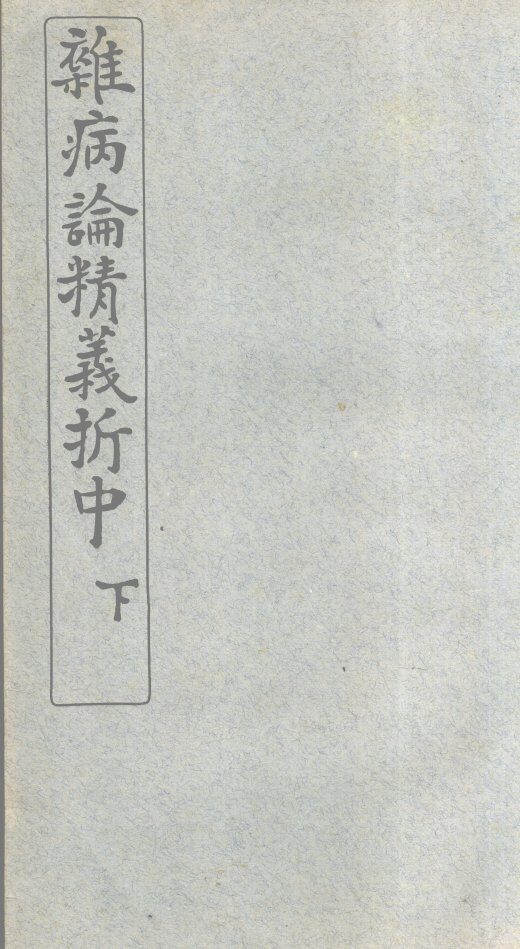 雜病論精義折中
下